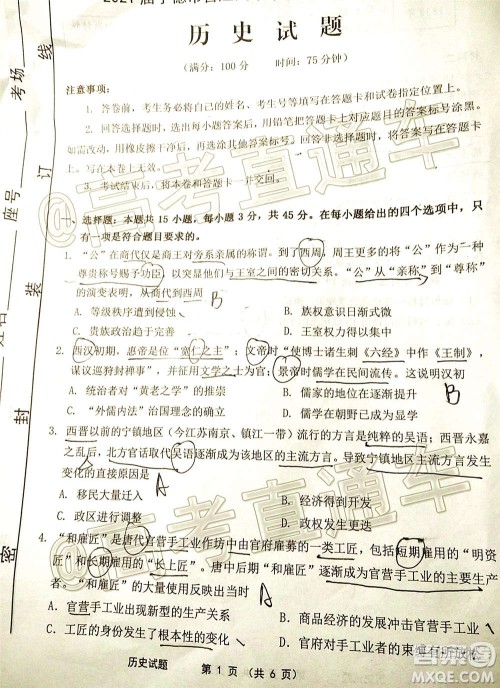 历 史 试 题
（满分：100 分　时间：75 分钟）
注意事项：
1. 答卷前，考生务必将自己的姓名、考生号等填写在答题卡和试卷指定位置上。
2. 回答选择题时，选出每小题答案后，用铅笔把答题卡上对应题目的答案标号涂黑。
如需改动，用橡皮擦干净后，再选涂其他答案标号。回答非选择题时，将答案写在答题卡
上。写在本卷上无效。
3. 考试结束后，将本卷和答题卡一并交回。
一、选择题：本题共 15 小题，每小题 3 分，共 45 分。在每小题给出的四个选项中，
只有一项是符合题目要求的。
1. “公”在商代仅是商王对旁系亲属的称谓。到了西周，周王更多的将“公”作为一种
尊贵称号赐予功臣，以突显他们与王室之间的密切关系。“公”从“亲称”到“尊称”
的演变表明，从商代到西周 B
A. 等级秩序遭到侵蚀　B. 族权意识日渐式微
C. 贵族政治趋于完善　D. 王室权力得以集中
2. 西汉初期，惠帝是位“宽仁之主”；文帝时“使博士诸生刺《六经》中作《王制》，
谋议巡狩封禅事”，并征用文学之士于官府；景帝时儒学在民间流传。这说明汉初
A. 统治者对“黄老之学”的推崇　B. 儒家的地位在逐渐提升 B
C. “外儒内法”治国理念的确立　D. 儒学的地位日益巩固
3. 西晋以前的宁镇地区（今江苏南京、镇江一带）流行的方言是纯粹的吴语；西晋永嘉
之乱后，北方官话取代吴语逐渐成为该地区的主流方言。导致宁镇地区主流方言发生
变化的直接原因是 A
A. 移民大量迁入　B. 经济得到开发
C. 政区进行调整　D. 文化交流加强
4. “和雇匠”是唐代官营手工业作坊中由官府雇募的一类工匠，包括短期雇用的“明资
匠”和长期雇用的“长上匠”。唐中后期“和雇匠”逐渐成为官营手工业的主要生产
者。“和雇匠”的大量使用反映出当时 A
A. 官营手工业出现新型的生产关系　B. 商品经济的发展冲击官营手工业
C. 工匠的身份发生了根本性的变化　D. 官府对手工业者的控制有所
历史试题　第 1 页（共 6 页）
考场
座号
密 封 装 订 线
@高考直通车
@高考直通车
作业帮
MXQE.COM